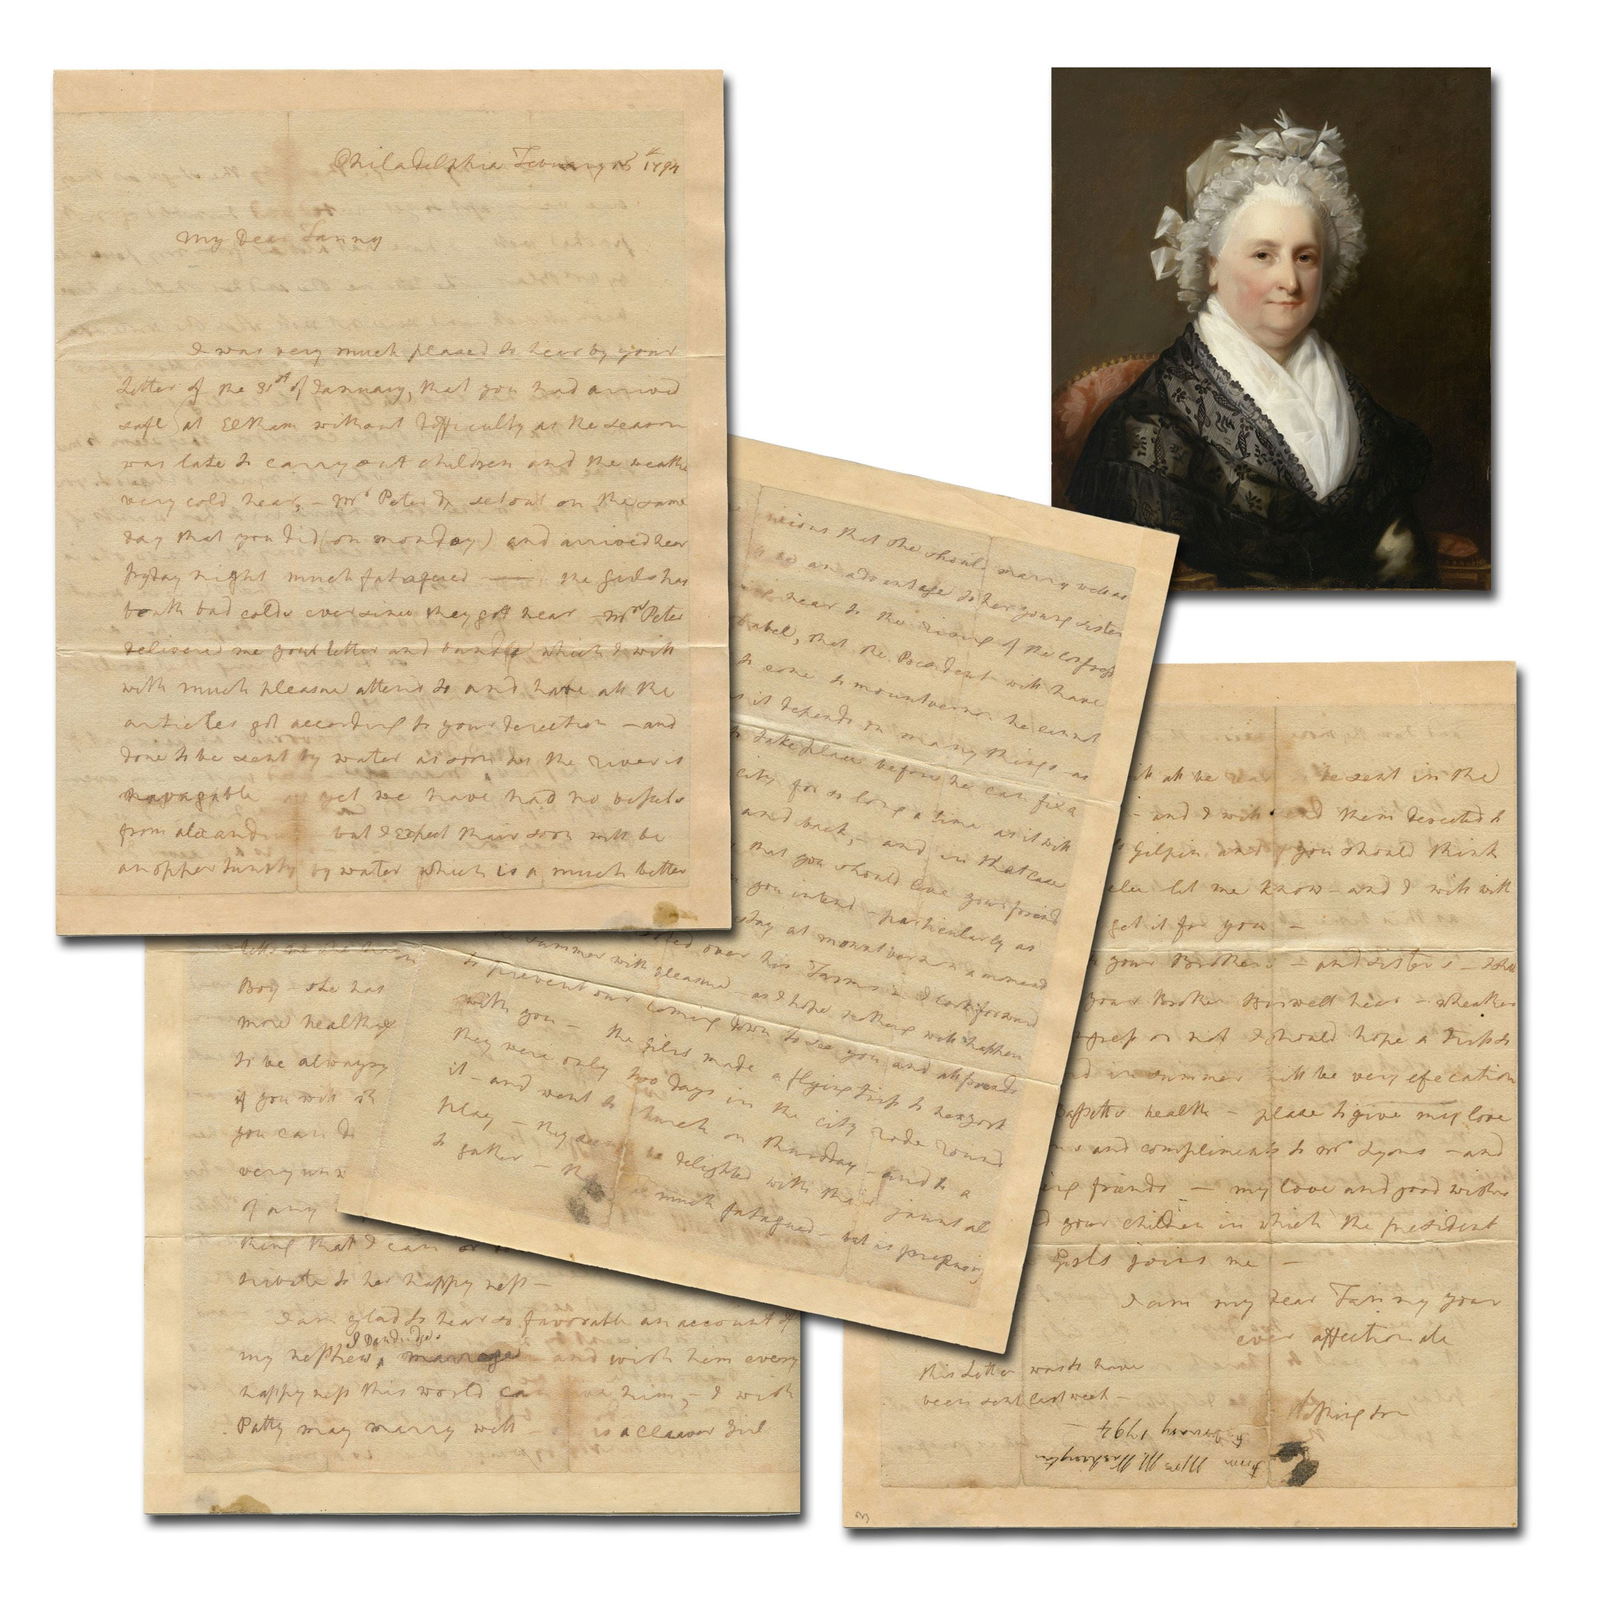 Philadelphia February 15th 1794
My Dear Fanny
I was very much pleased to hear by your
Letter of the 31st of January, that you had arrived
safe at Eltham without difficulty as the season
was late to carry out children and the weathe
very cold hear, - Mrs Peter &c setout on the same
day that you did (on monday) and arrived hear
fryday night much fatagued — the girls has
both bad colds ever since they got hear - Mrs Peter
delivered me your letter and bundle which I will
with much pleasure attend to and have all the
articles got according to your direction - and
done to be sent by water as soon as the river is
navagable yet we have had no vessels
from alexand but I expect thair soon will be
an oppertunity by water which is a much better
that she should marry well as
an advantage to her young sister
near to the rising of the Congress
that the President will have
to come to mountvernon he cannot
it depends on many things as
to take place before he can fix a
city for so long a time as it will
and back, - and in that case
that you should leave your friend
you intend - particularly as
stay at mountvernon ammed
over his Farms - I look forward
summer with pleasure - as I hope nothing will happen
to prevent our coming down to see you and all friends
with you - the girls made a flying trip to newyork
they were only two days in the city rode round
it - and went to church on thursday - and to a
play - they delighted with thair jaunt al
to gather - much fatagued - but is prepairing
tells me she has
Boy - she has
more healthy
to be always
if you will
you can
very un
of any
thing that I can
to her happyness -
I am glad to hear so favorable an account of
J Dandridges
my nephew, marrage and wish him every
happyness this world can him, - I wish
Patty may marry well - is a cleaver Girl
all be sent in the
- and I will send them directed to
Gilpin and if you should think
else let me know - and I will with
get it for you -
your Brothers - and sisters -
your Brother Burwell hear - wheather
or not I should hope a trip to
in summer will be very efecation
Bassetts health - please to give my love
and compliments to Mr Lyons - and
friends - my love and good wishes
your children in which the president
Girls joins me -
I am my dear Fanny your
ever affectionate
Washington
this Letter was to have
been sent last week -
from Mrs M. Washington
February 1794